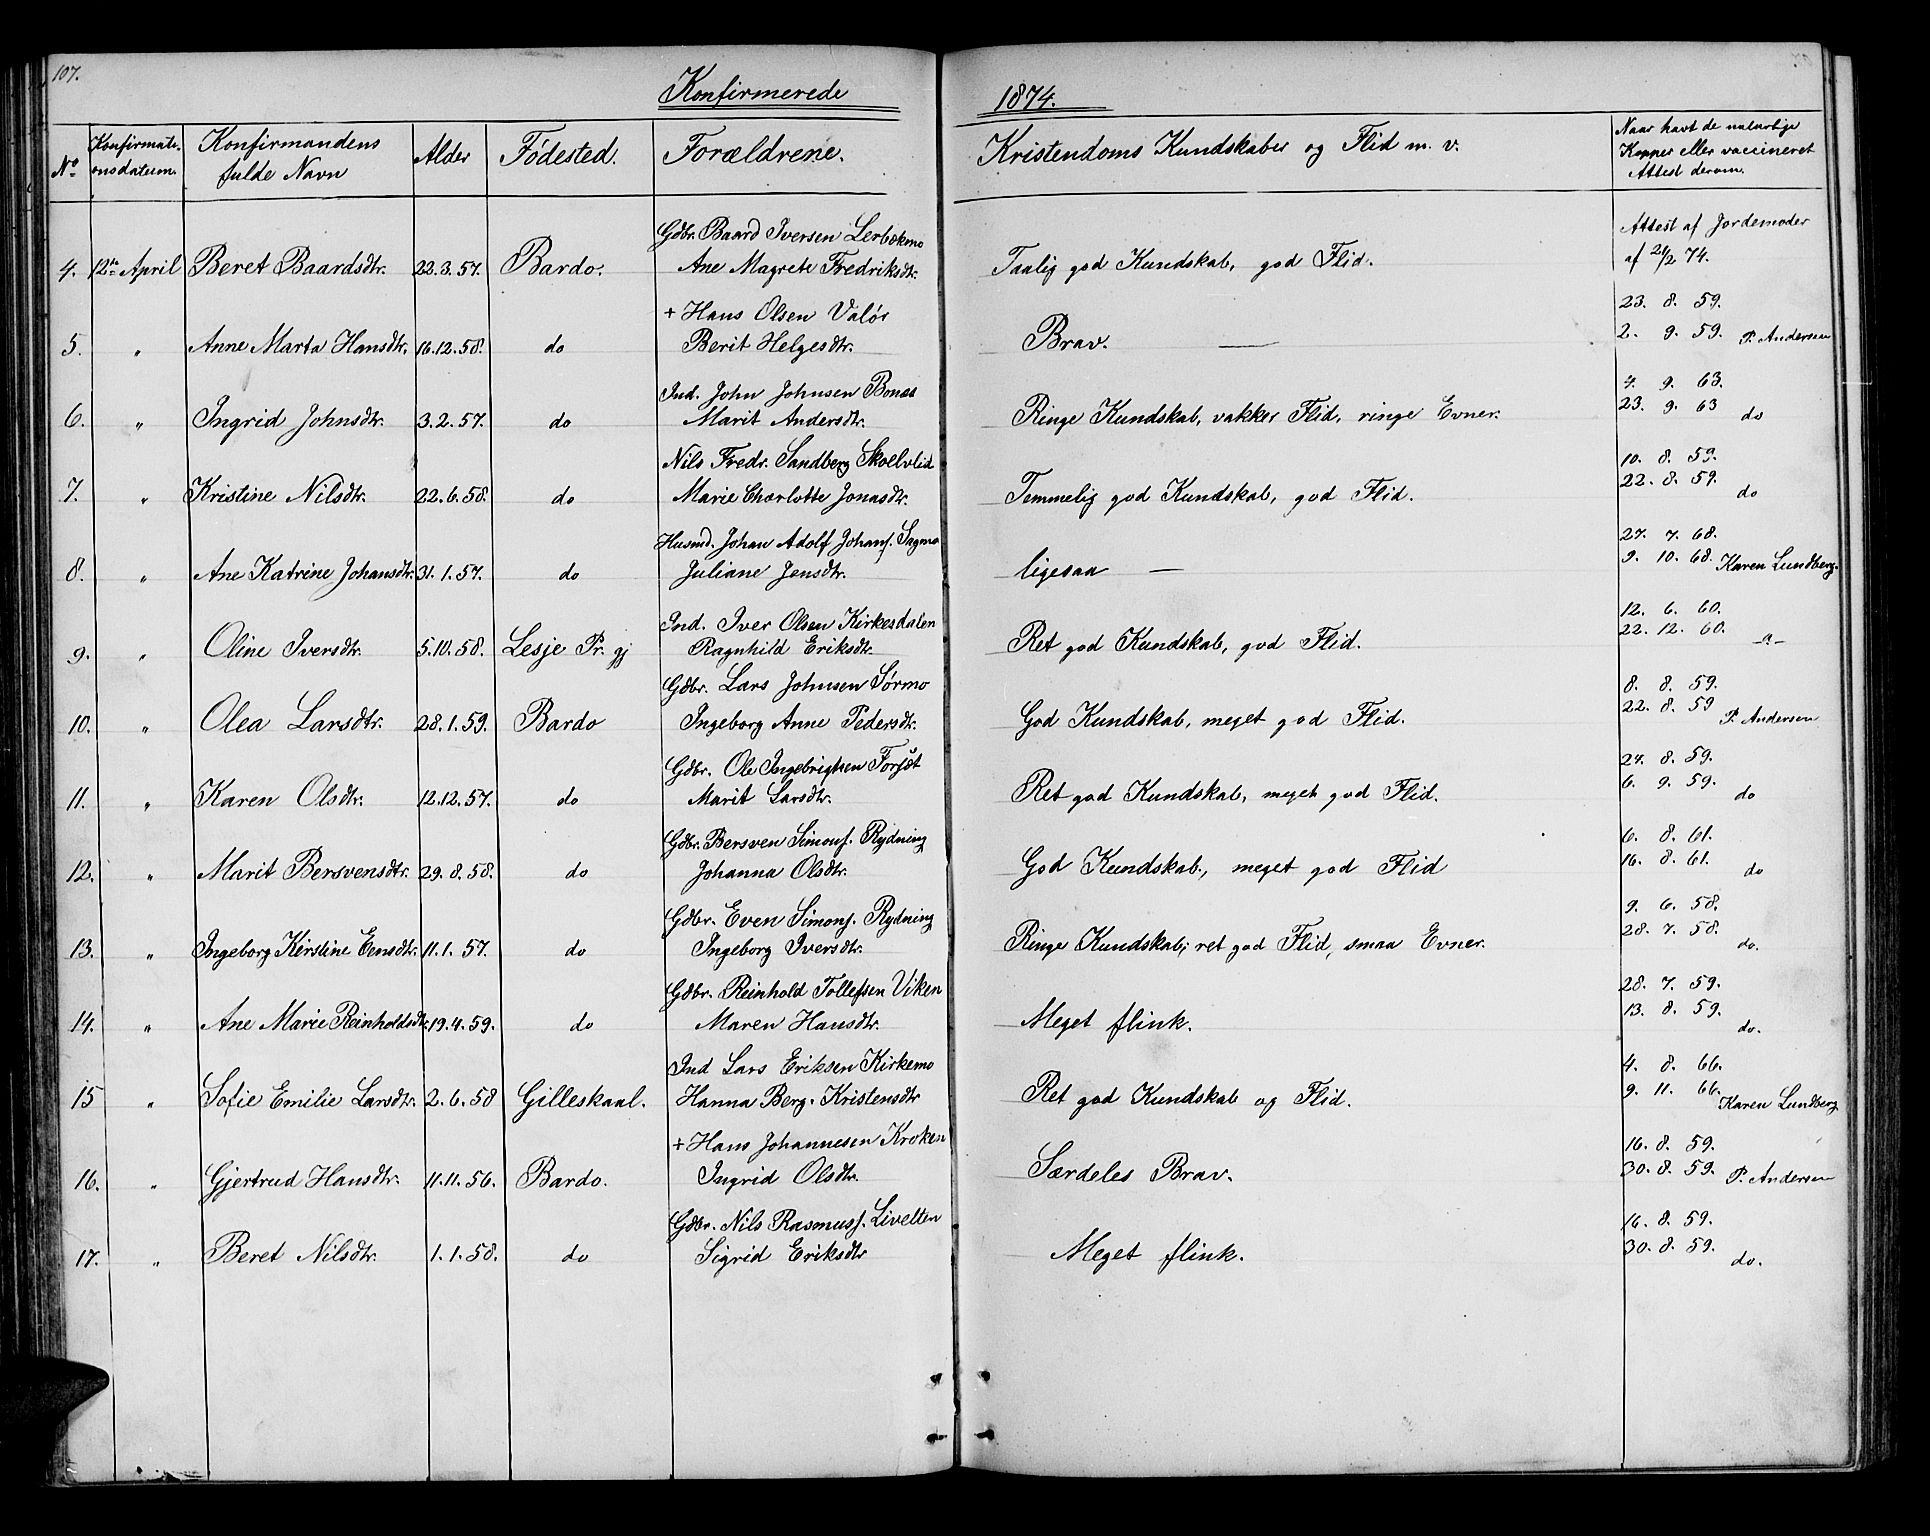 107.
Konfirmerede 1874.
No Konfirmationsdatum. Konfirmandens fulde Navn Alder Fødested. Forældrene. Kristendoms Kundskaber og Flid m. v. Naar havt de naturlige Kopper eller vaccineret Attest derom.
Gdbr. Baard Iversen Lerbækmo Attest af Jordemoder
4. 12te April Beret Baardsdtr. 22.3.57. Bardo. Ane Magrete Fredriksdtr. Taalig god Kundskab, god Flid. af 21/2 74.
+ Hans Olsen Valør 23. 8. 59.
5. " Anne Marta Hansdtr. 16.12.58. do Berit Helgesdtr. Brav. — 2. 9. 59. P. Andersen
Ind. John Johnsen Bonæs 4. 9. 63.
6. " Ingrid Johnsdtr. 3.2.57. do Marit Andersdtr. Ringe Kundskab, vakker Flid, ringe Evner. 23. 9. 63 do
Nils Fredr. Sandberg Skoelvlid 10. 8. 59.
7. " Kristine Nilsdtr. 22.6.58. do Marie Charlotte Jonasdtr. Temmelig god Kundskab, god Flid. 22. 8. 59. do
Husmd. Johan Adolf Johans. Sagmo 27. 7. 68.
8. " Ane Katrine Johansdtr. 31.1.57. do Juliane Jensdtr. ligesaa — 9. 10. 68. Karen Lundberg.
Ind. Iver Olsen Kirkesdalen 12. 6. 60.
9. " Oline Iversdtr. 5.10.58. Lesje Pr. gj Ragnhild Eriksdtr. Ret god Kundskab, god Flid. 22. 12. 60. -"-
Gdbr. Lars Johnsen Sørmo 8. 8. 59.
10. " Olea Larsdtr. 28.1.59. Bardo Ingeborg Anne Pedersdtr. God Kundskab, meget god Flid. 22. 8. 59 P. Andersen
Gdbr. Ole Ingebrigtsen Forsæt 24. 8. 59.
11. " Karen Olsdtr. 12.12.57. do Marit Larsdtr. Ret god Kundskab, meget god Flid. 6. 9. 59. do
Gdbr. Bersven Simons. Rydning 6. 8. 61.
12. " Marit Bersvensdtr. 29.8.58. do Johanna Olsdtr. God Kundskab, meget god Flid 16. 8. 61. do
Gdbr. Even Simons. Rydning 9. 6. 58.
13. " Ingeborg Kirstine Evensdtr. 11.1.57. do Ingeborg Iversdtr. Ringe Kundskab, ret god Flid, smaa Evner. 28. 7. 58. do.
Gdbr. Reinhold Tollefsen Viken 28. 7. 59.
14. " Ane Marie Reinholdsdtr. 19.4.59. do Maren Hansdtr. Meget flink. 13. 8. 59. do.
Ind Lars Eriksen Kirkemo 4. 8. 66.
15 " Sofie Emilie Larsdtr. 2.6.58 Gilleskaal. Hanna Berg. Kristensdtr Ret god Kundskab og Flid. 9. 11. 66. Karen Lundberg
+ Hans Johannesen Kroken 16. 8. 59.
16. " Gjertrud Hansdtr. 11.11.56. Bardo. Ingrid Olsdtr. Særdeles Brav. 30. 8. 59. P. Andersen
Gdbr. Nils Rasmuss. Livelten 16. 8. 59.
17. " Beret Nilsdtr. 1.1.58. do Sigrid Eriksdtr Meget flink. 30. 8. 59. do.